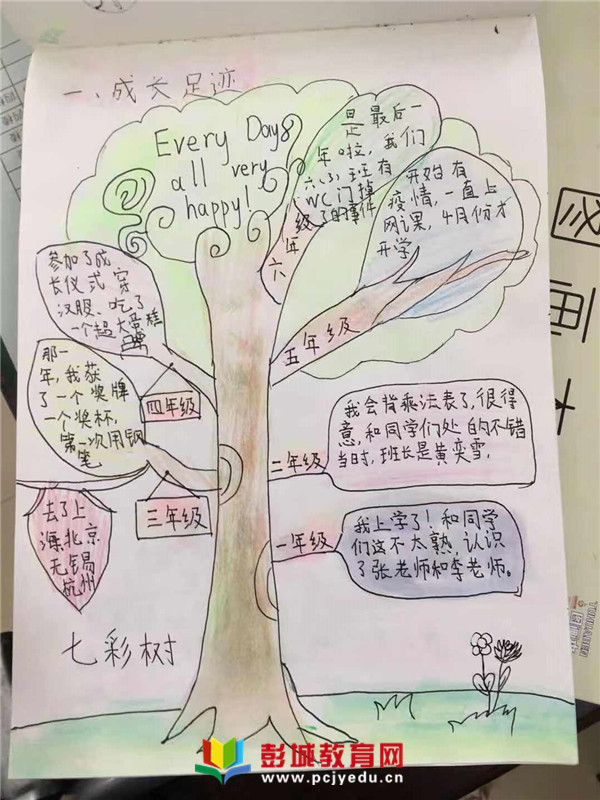 一、成长足迹
Every Day
all very
happy!
是最后一
年啦，我们
六、3，班有
WC门掉
了的事件
六年级
开始有
疫情，一直上
网课，4月份才
开学
五年级
参加了成
长仪式穿
汉服、吃了
一个超大蛋糕
四年级
那一
年，我获
了一个奖牌
一个奖杯，
第一次用钢
笔
三年级
我会背乘法表了，很得
意，和同学们处的不错
当时，班长是黄奕雪，
二年级
我上学了！和同学
们这不太熟，认识
了张老师和李老师。
一年级
去了上
海北京
无锡
杭州
七彩树
彭城教育网
www.pcjyedu.cn